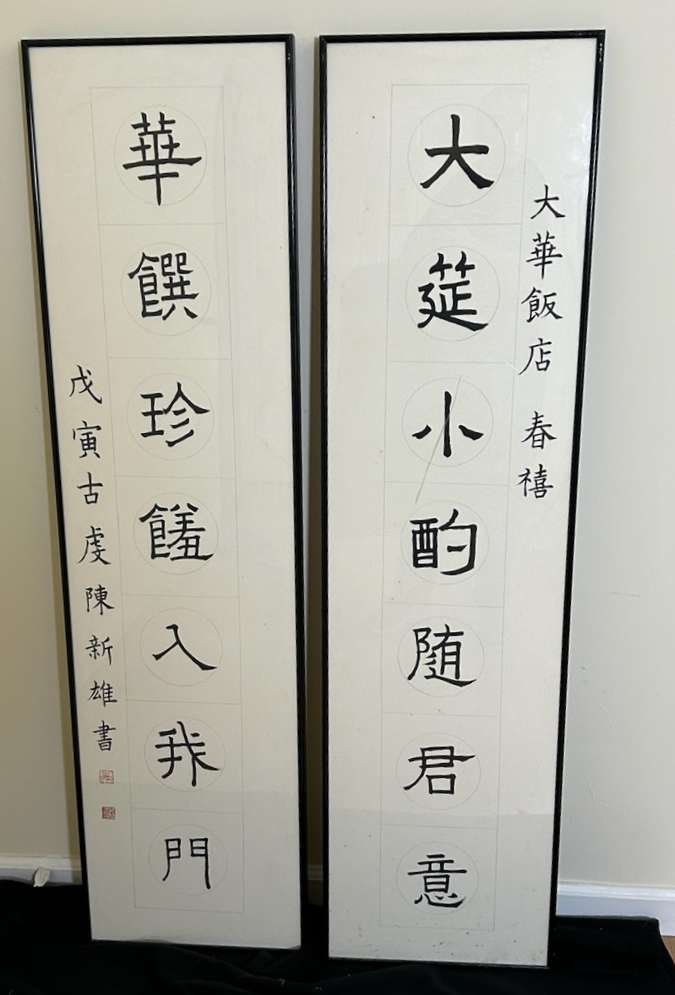 大華飯店 春禧
大筵小酌随君意
華饌珍饈入我門
戊寅古虔陳新雄書